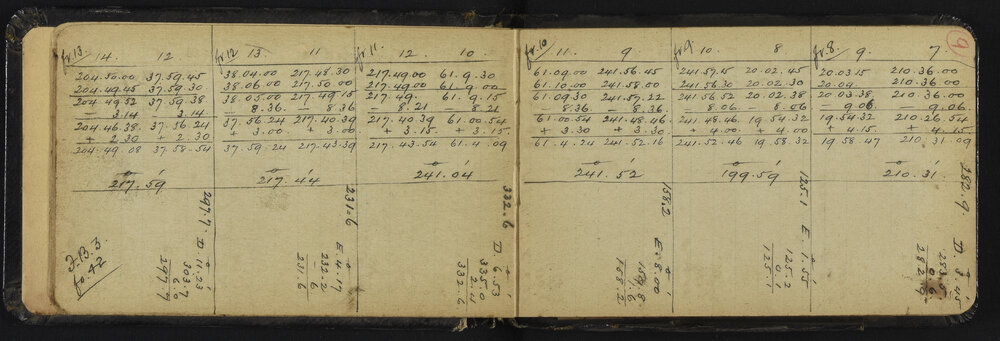 fr.13 14. 12.
204.50.00 37.59.45
204.49.45 37.59.30
204.49.52 37.59.38
— 3.14 3.14
204.46.38 37.56.24
+ 2.30 2.30
204.49.08 37.58.54
217.59
297.7
D. 11.23
303.7
6.0
297.7
F.B.3.
fo.42
fr.12 13. 11
38.04.00 217.48.30
38.06.00 217.50.00
38.05.00 217.49.15
— 8.36 — 8.36
37.56.24 217.40.39
+ 3.00 + 3.00
37.59.24 217.43.39
217.44
231.6
E. 4.17
232.2
.6
231.6
fr.11. 12. 10.
217.49.00 61.9.30
217.49.00 61.9.00
217.49. 61.9.15
— 8.21 8.21
217.40.39 61.00.54
+ 3.15 + 3.15
217.43.54 61.4.09
241.04
332.6
D. 6.53
335.0
2.4
332.6
fr.10 11. 9.
61.09.00 241.56.45
61.10.00 241.58.00
61.09.30 241.57.22
8.36 — 8.36
61.00.54 241.48.46
+ 3.30 + 3.30
61.4.24 241.52.16
241.52
158.2
E. 8.00
159.8
1.6
158.2
fr.9 10. 8
241.57.15 20.02.45
241.56.30 20.02.30
241.56.52 20.02.38
— 8.06 — 8.06
241.48.46 19.54.32
+ 4.00 + 4.00
241.52.46 19.58.32
199.59
125.1
E. 1.55
125.2
0.1
125.1
fr.8. 9. 7.
20.03.15 210.36.00
20.04. 210.36.00
20.03.38 210.36.00
— 9.06 — 9.06
19.54.32 210.26.54
+ 4.15 + 4.15
19.58.47 210.31.09
210.31
282.9.
D. 3.45
283.5
0.6
282.9
9